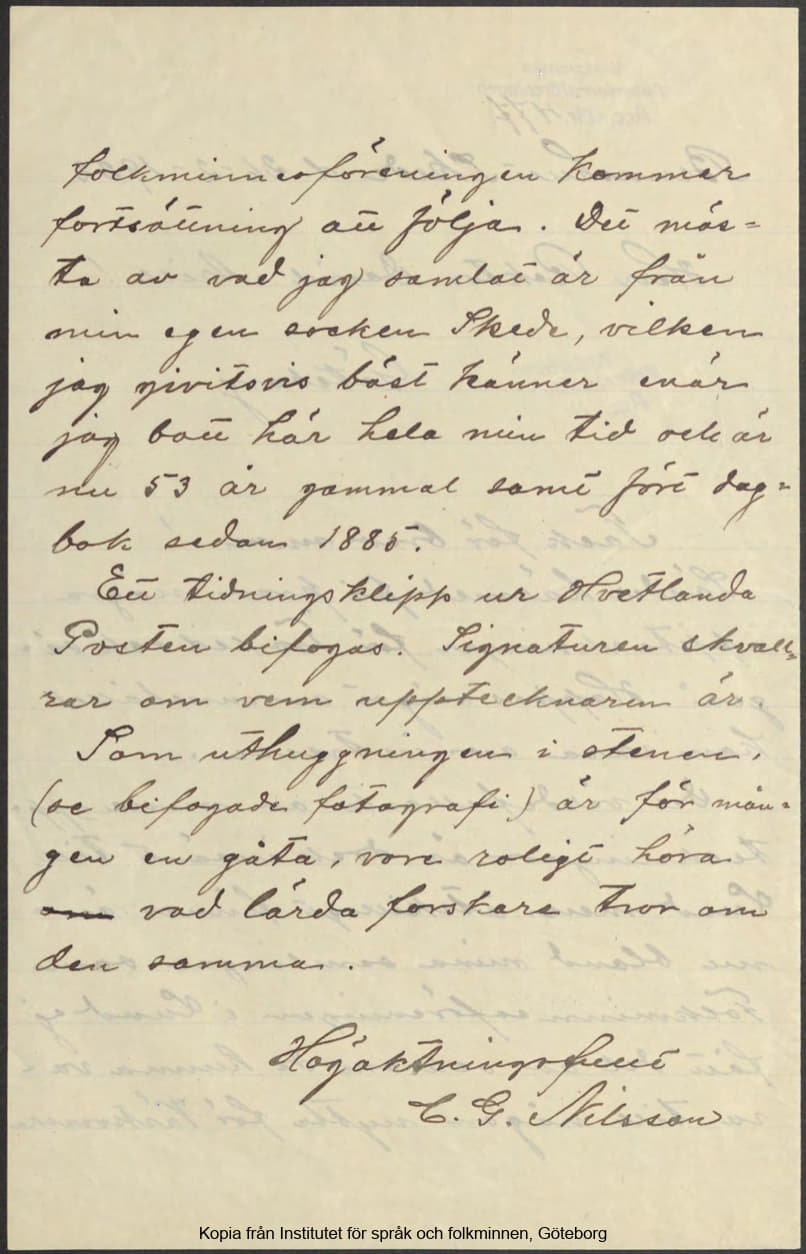 folkminnesföreningen kommer
fortsättning att följa. Det mäs=
ta av vad jag samlat är från
min egen socken Skede, vilken
jag givitsvis bäst känner enär
jag bott här hela min tid och är
nu 53 år gammal samt fört dag=
bok sedan 1885.
Ett tidningsklipp ur Hvetlanda
Posten bifogas. Signaturen skvall=
rar om vem upptecknaren är.
Som uthuggningen i stenen,
(se bifogade fotografi) är för mån=
gen en gåta, vore roligt höra
om vad lärda forskare tror om
den samma.
Högaktningsfullt
C. G. Nilsson
Kopia från Institutet för språk och folkminnen, Göteborg